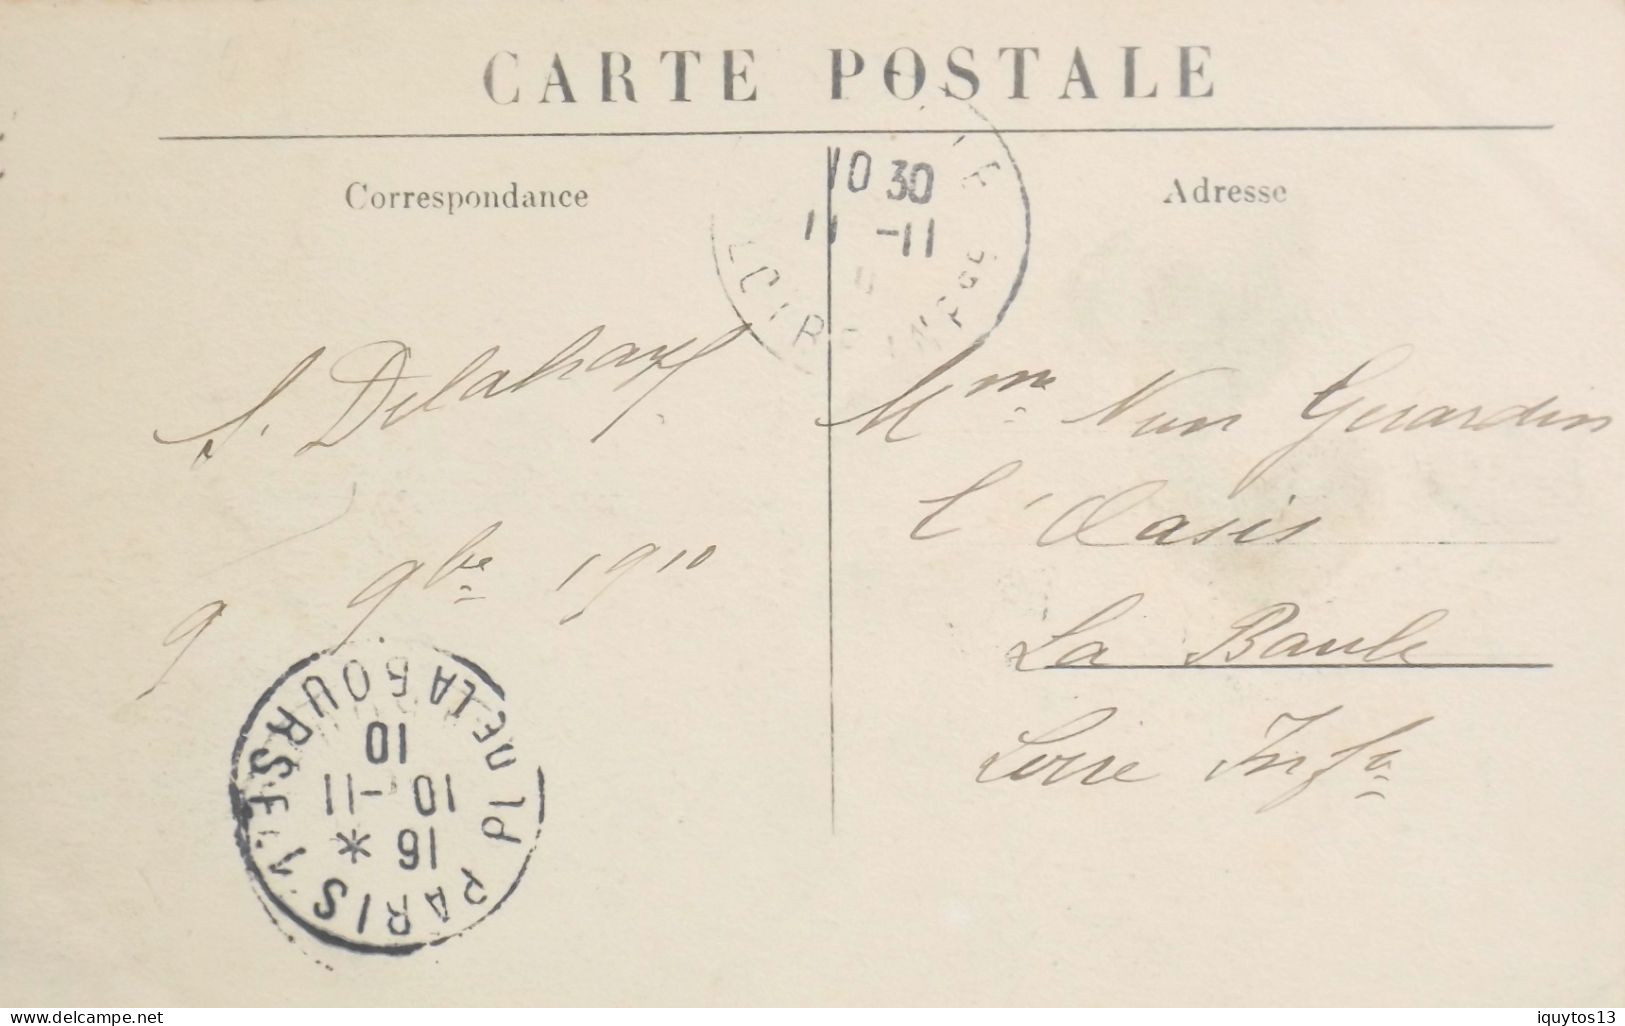 CARTE POSTALE
Correspondance
Adresse
10 30
11 -11
LOIRE INFRE
S. Delahaye
9 9bre 1910
Mme Nun Girardin
L'Oasis
La Baule
Loire Infre
PARIS 1 * PL DE LA BOURSE
16 *
10 -11
10
delcampe.net
iquytos13